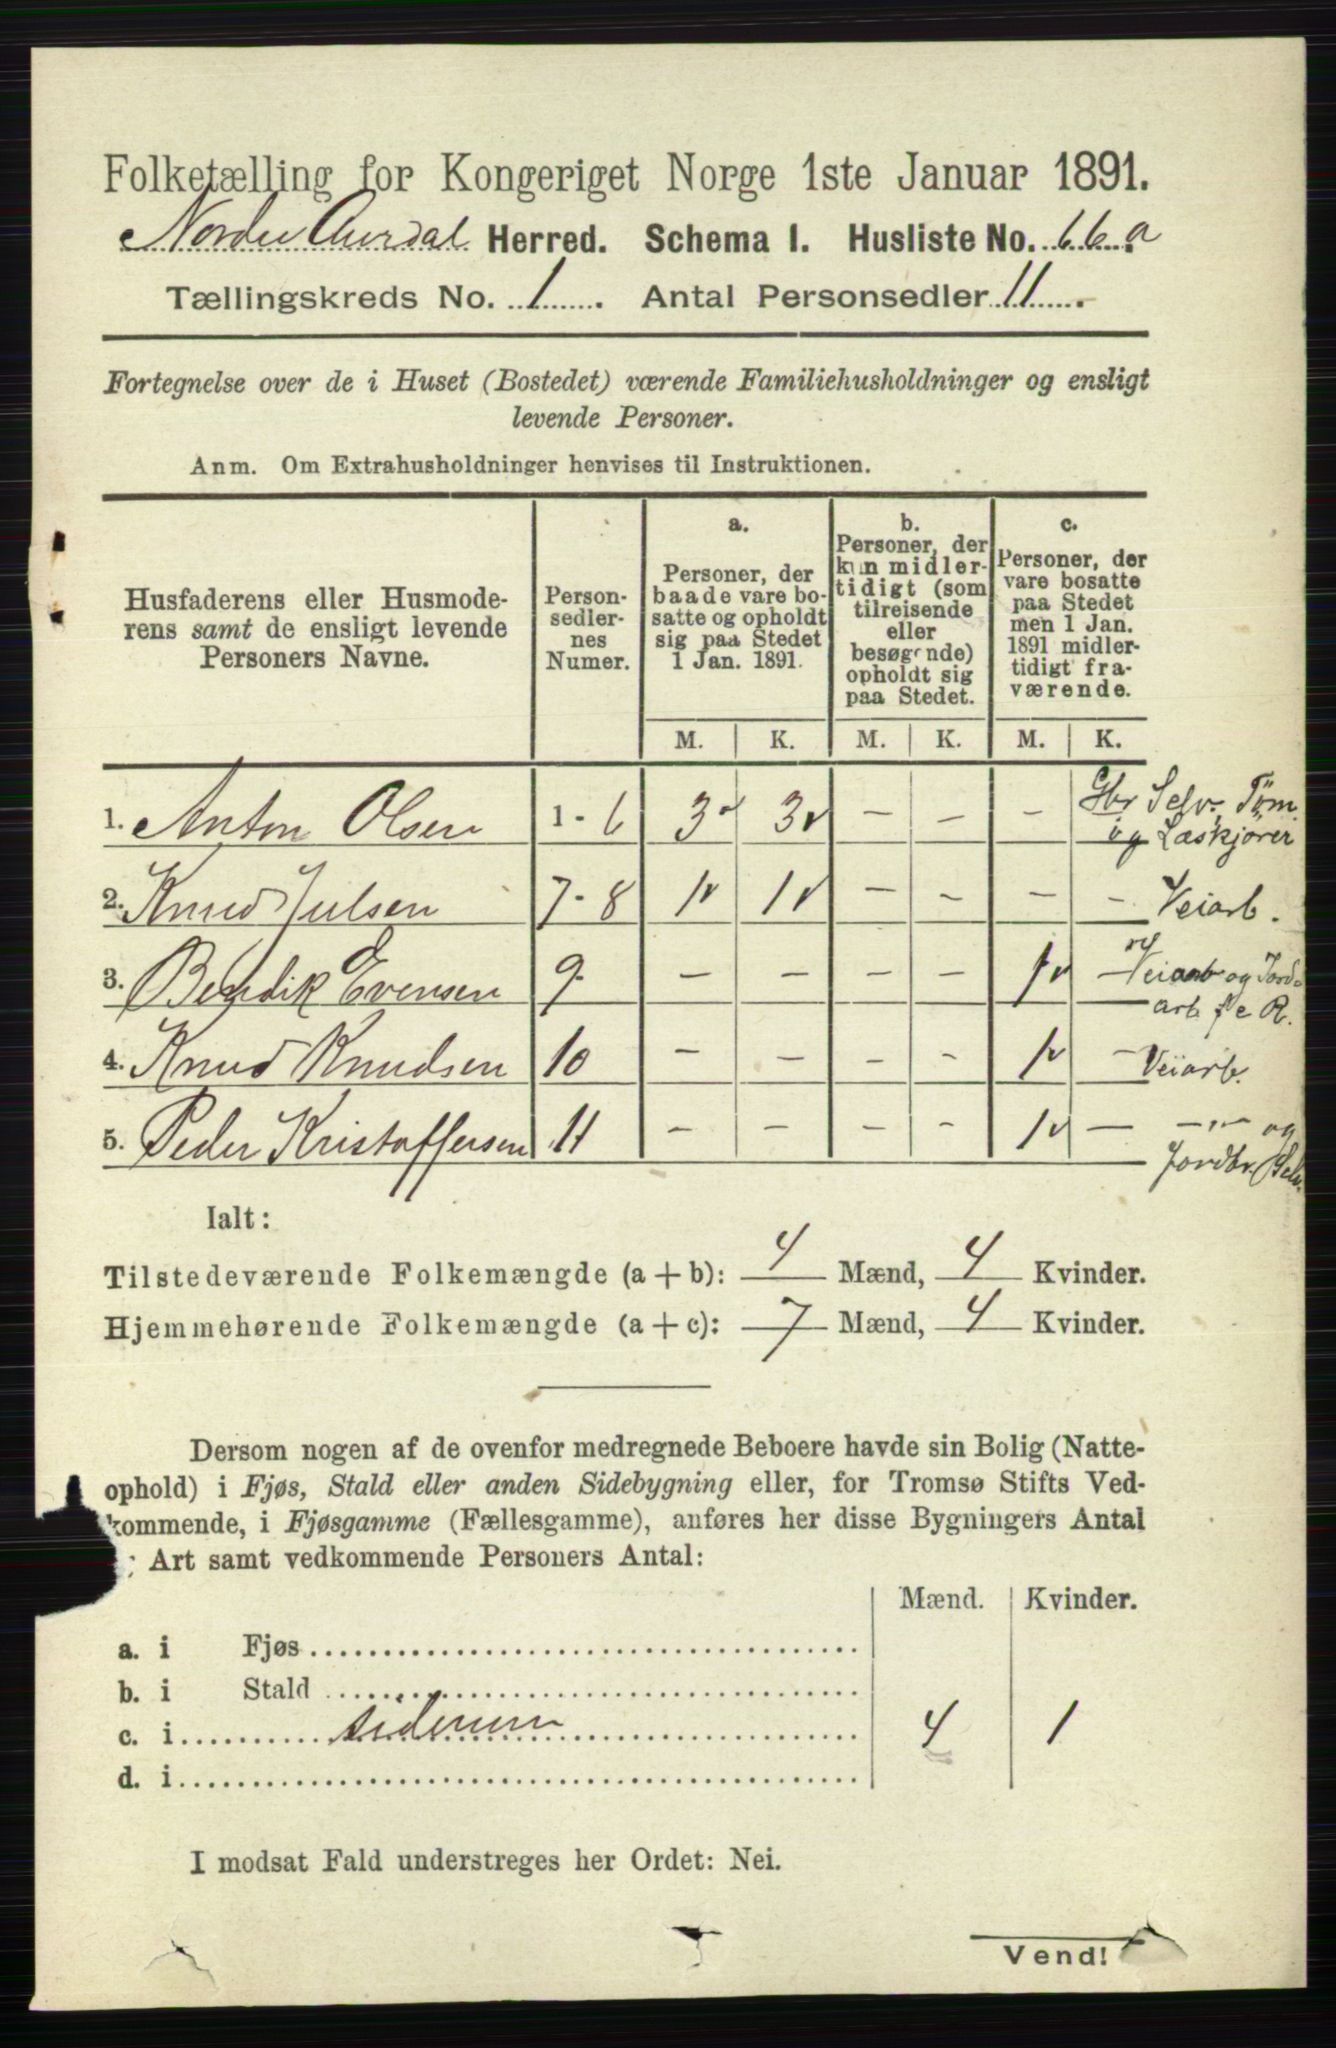 Folketælling for Kongeriget Norge 1ste Januar 1891.
Nordre Aurdal Herred. Schema I. Husliste No. 66 a
Tællingskreds No. 1. Antal Personsedler 11.
Fortegnelse over de i Huset (Bostedet) værende Familiehusholdninger og ensligt
levende Personer.
Anm. Om Extrahusholdninger henvises til Instruktionen.
Husfaderens eller Husmode-
rens samt de ensligt levende
Personers Navne.
Person-
sedler-
nes
Numer.
a.
Personer, der
baade vare bo-
satte og opholdt
sig paa Stedet
1 Jan. 1891.
b.
Personer, der
kun midler-
tidigt (som
tilreisende
eller
besøgende)
opholdt sig
paa Stedet.
c.
Personer, der
vare bosatte
paa Stedet
men 1 Jan.
1891 midler-
tidigt fra-
værende.
M. K. M. K. M. K.
1. Anton Olsen 1 - 6 3 3 — — — Gbr Selv. Töm.
og Læskjører
2. Knud Julsen 7 - 8 1 1 — — — — Veiarb.
3. Bendik Evensen 9 — — — — 1 — Veiarb og Jord-
arb f e R.
4. Knud Knudsen 10 — — — — 1 — Veiarb.
5. Peder Kristoffersen 11 — — — — 1 — —"— og
Jordbr. Selv.
Ialt:
Tilstedeværende Folkemængde (a + b): 4 Mænd, 4 Kvinder.
Hjemmehørende Folkemængde (a + c): 7 Mænd, 4 Kvinder.
Dersom nogen af de ovenfor medregnede Beboere havde sin Bolig (Natte-
ophold) i Fjøs, Stald eller anden Sidebygning eller, for Tromsø Stifts Ved-
kommende, i Fjøsgamme (Fællesgamme), anføres her disse Bygningers Antal
Art samt vedkommende Personers Antal:
Mænd. Kvinder.
a. i Fjøs
b. i Stald
c. i 4 1
d. i
I modsat Fald understreges her Ordet: Nei.
Vend!